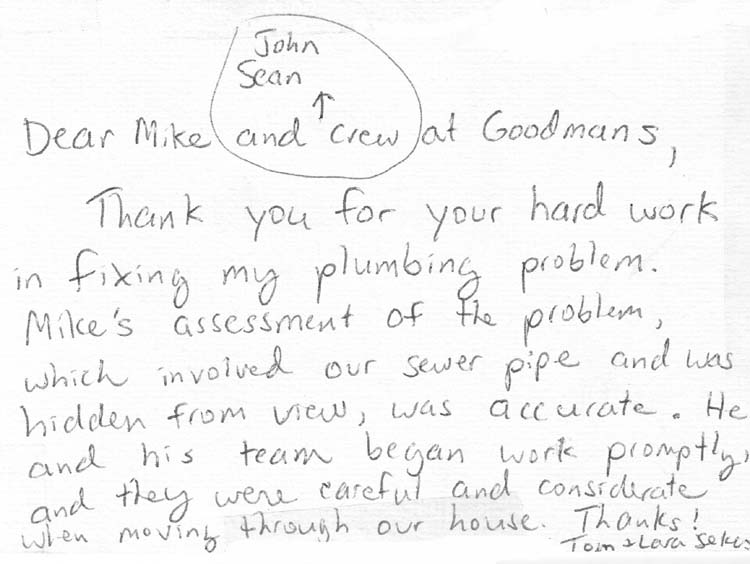 John
Sean
↑
Dear Mike and crew at Goodmans,
Thank you for your hard work
in fixing my plumbing problem.
Mike's assessment of the problem,
which involved our sewer pipe and was
hidden from view, was accurate. He
and his team began work promptly,
and they were careful and considerate
when moving through our house. Thanks!
Tom + Lara